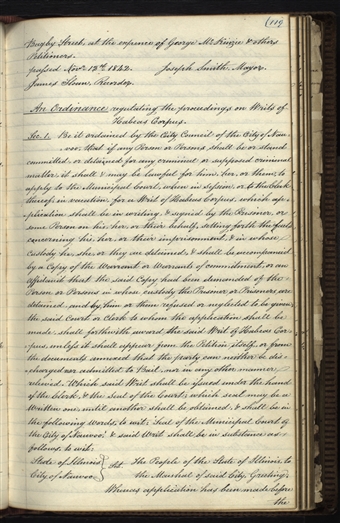 (119)
Bagby Street, at the expence of George McKinzie & others
Petitioners.
passed Novr 12th 1842. Joseph Smith, Mayor
James Sloan, Recorder
An Ordinance regulating the proceedings on Writs of
Habeas Corpus.
Sec. 1. Be it ordained by the City Council of the City of Nau-
-voo. that if any Person or Persons shall be or stand
committed, or detained for any criminal or supposed criminal
matter, it shall & may be lawful for him, her, or them, to
apply to the Municipal Court, when in session, or to the Clerk
thereof in vacation, for a Writ of Habeas Corpus, which ap-
-plication shall be in writing, & signed by the Prisoner, or
some Person on his, her, or their behalf, setting forth the facts
concerning his, her, or their imprisonment, & in whose
custody he, she, or they are detained, & shall be accompanied
by a Copy of the Warrant or Warrants of commitment, or an
Affidavit that the said Copy had been demanded of the
Person or Persons in whose custody the Prisoner or Prisoners are
detained, and by him or them refused or neglected to be given
the said Court or Clerk to whom the application shall be
made shall forthwith award the said Writ of Habeas Cor-
-pus, unless it shall appear from the Petition itself, or from
the documents annexed that the party can neither be dis-
-charged nor admitted to Bail, nor in any other manner
relieved. Which said Writ shall be issued under the hand
of the Clerk, & the Seal of the Court, which seal may be a
written one, until another shall be obtained, & shall be in
the following words, to wit, "seal of the Municipal Court of
the City of Nauvoo," & said Writ shall be in substance as
follows to wit:
State of Illinois } Sct. The People of the State of Illinois to
City of Nauvoo } the Marshal of said City, Greeting:
Whereas application has been made before
the